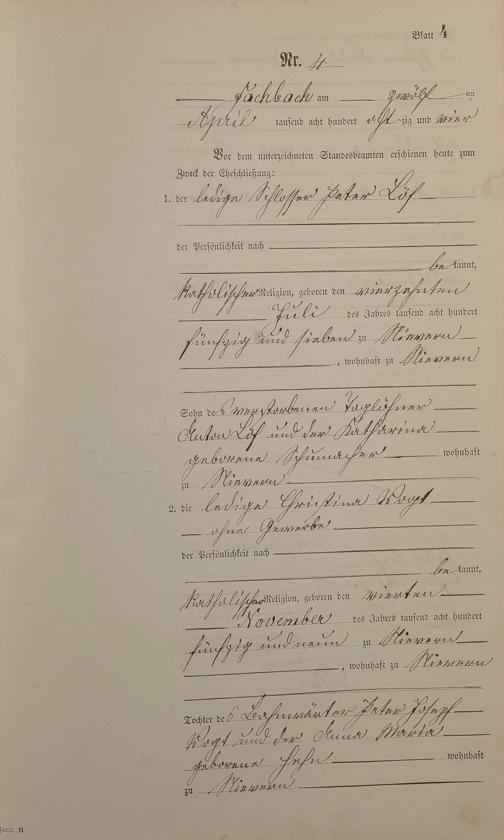 Blatt 4
Nr. 4
Fachbach am zwölften
April tausend acht hundert achtzig und vier
Vor dem unterzeichneten Standesbeamten erschienen heute zum
Zweck der Eheschließung:
1. der ledige Schlosser Peter Löf
der Persönlichkeit nach
bekannt,
katholischer Religion, geboren den vierzehnten
Juli des Jahres tausend acht hundert
fünfzig und sieben zu Nievern
, wohnhaft zu Nievern
Sohn des verstorbenen Taglöhner
Anton Löf und der Katharina
geborene Schumacher wohnhaft
zu Nievern
2. die ledige Christina Vogt
ohne Gewerbe
der Persönlichkeit nach
bekannt,
katholischer Religion, geboren den vierten
November des Jahres tausend acht hundert
fünfzig und neun zu Nievern
, wohnhaft zu Nievern
Tochter des Bahnwärter Peter Josepf
Vogt und der Anna Maria
geborene Hehn wohnhaft
zu Nievern
Form. B.